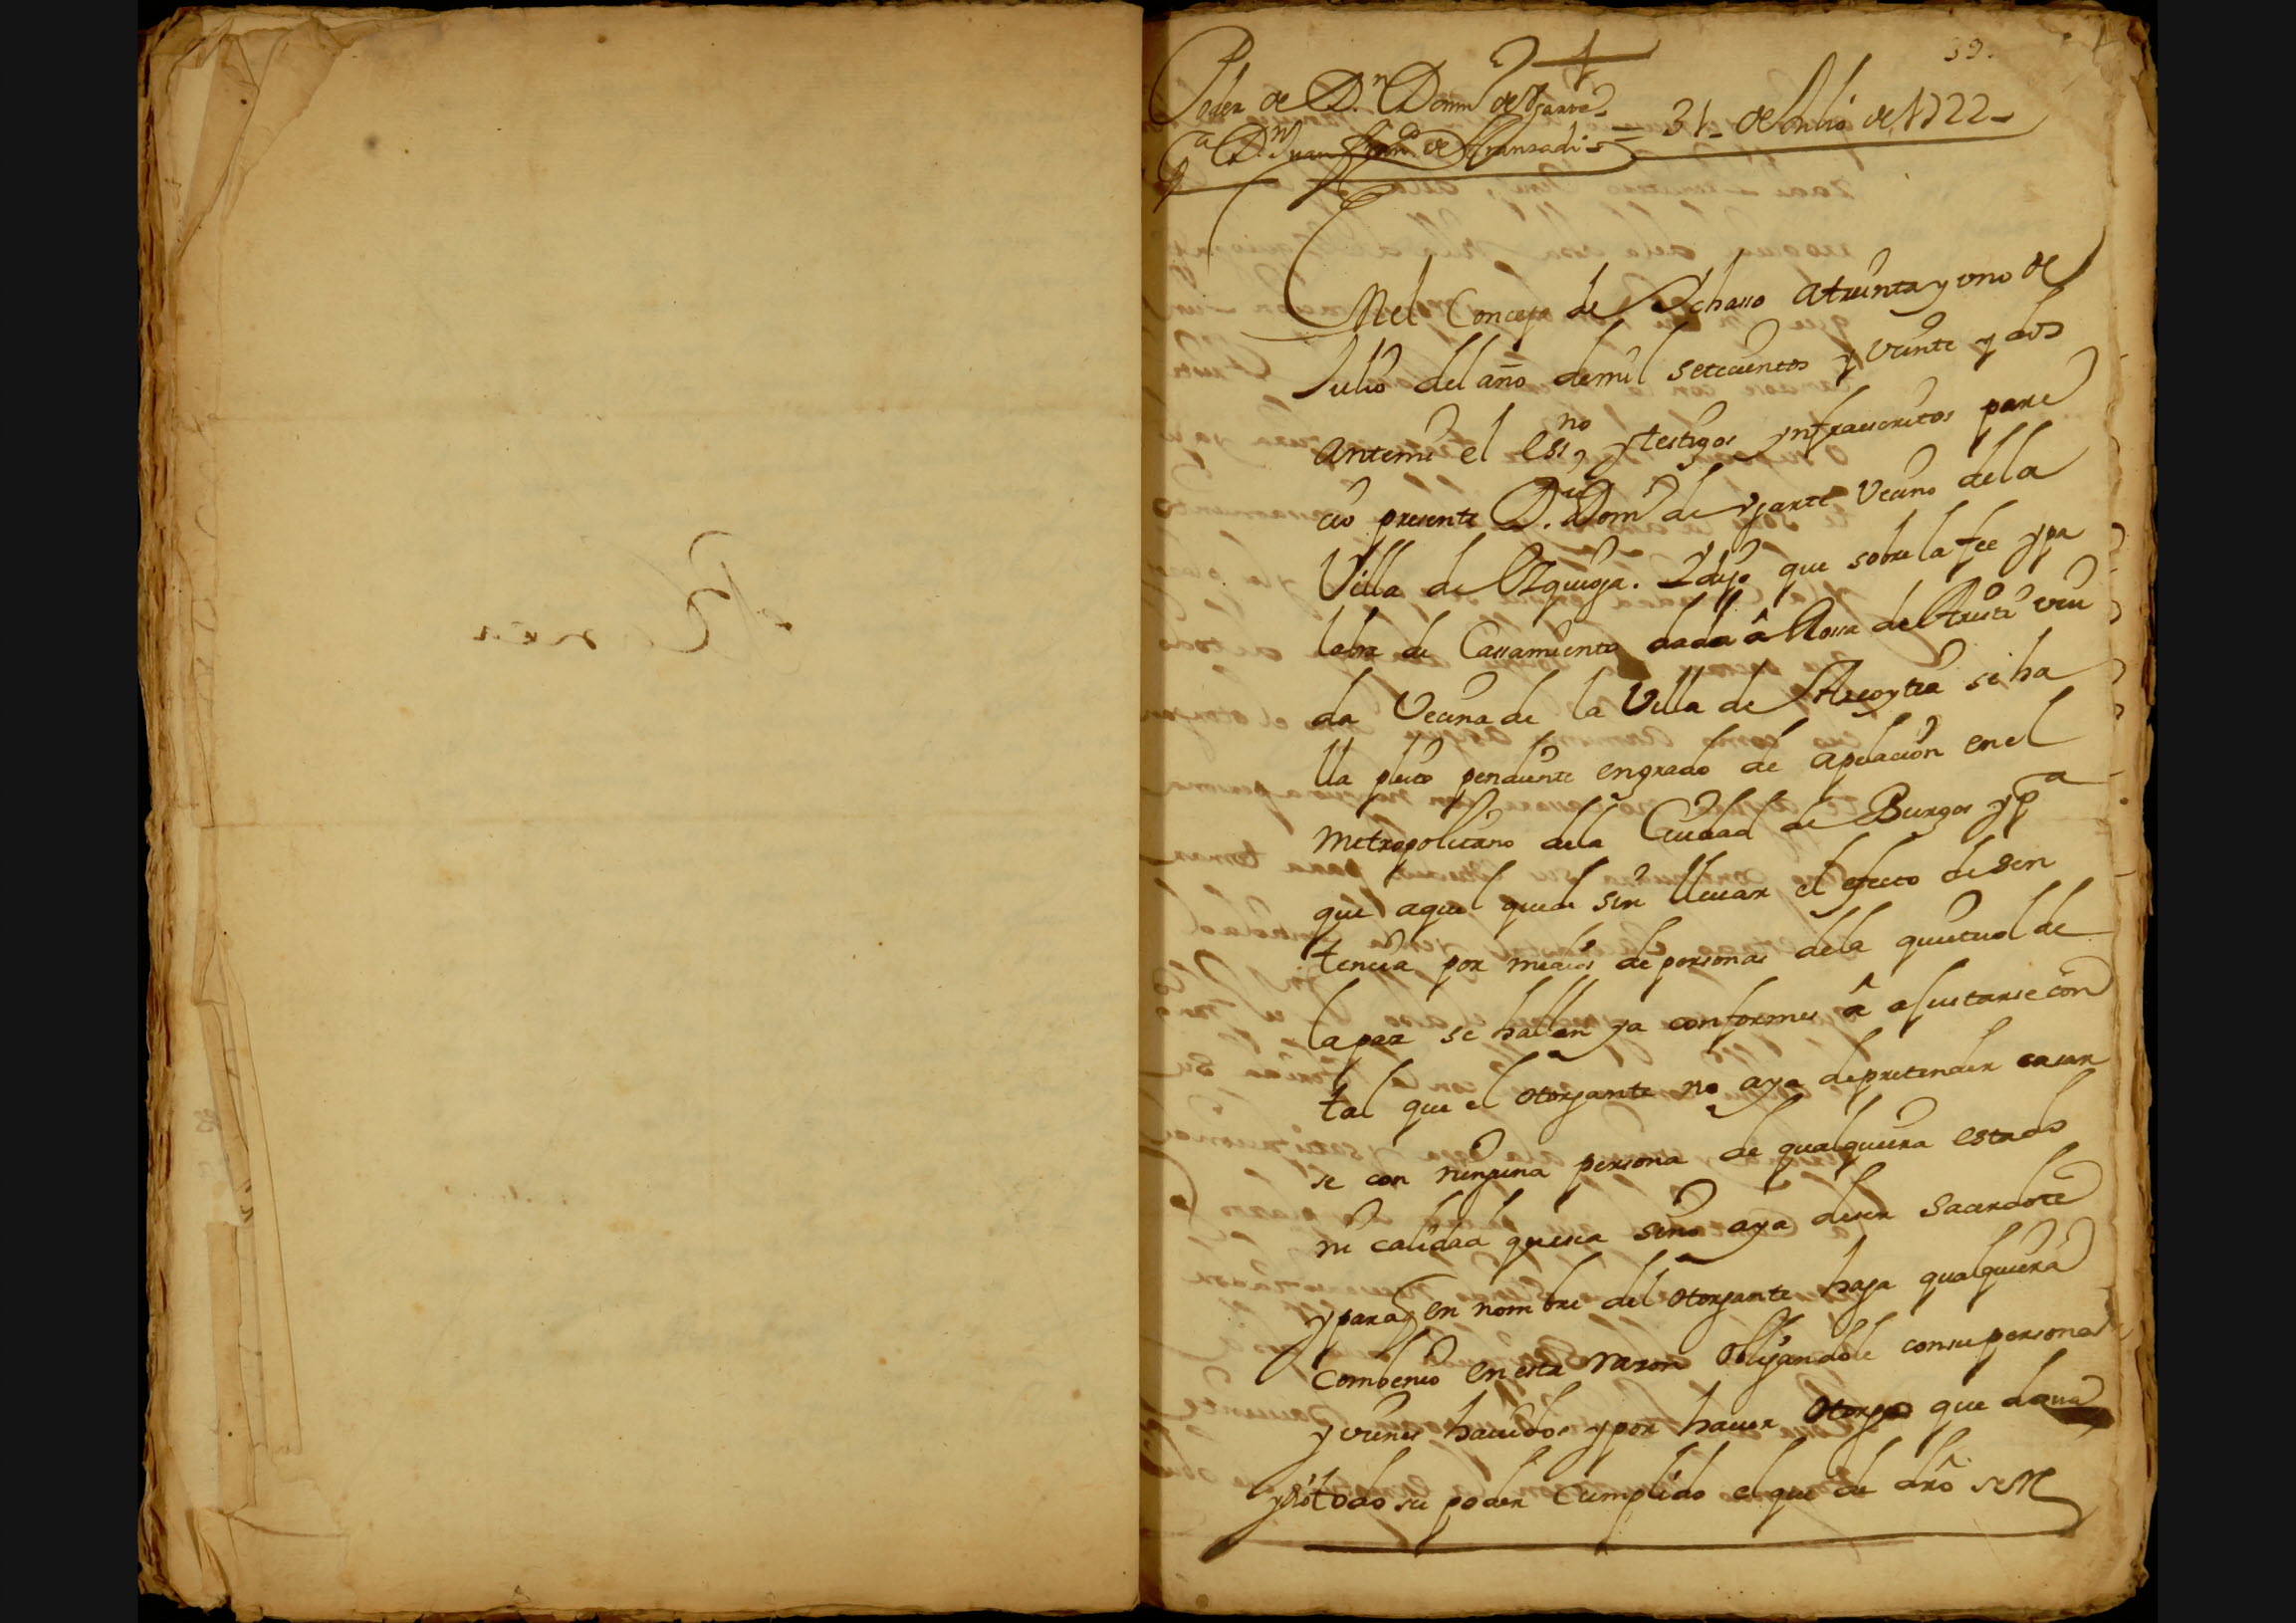 39.
Poder de D.n Dom.o de Ygarte
a D.n Juan Fran.co de Aranzadi = 31 de Julio de 1722
Enel Concejo de Ychasso atreinta y uno de
Julio del año demil setecientos y veinte y dos
antemi el ess.no y testigos ynfraescritos pare
cio presente D.n Dom.o de ygarte Vecino dela
Villa de Ezquioga. Y dijo que sobre la fee y pa
labra de Cassamiento dada â Rosa de Aristi viu
da Vecina de la Villa de Azcoytia se ha
lla pleito pendiente engrado de apelacion enel
Metropolitano dela Ciudad de Burgos y p.a
que aquel quede sin llevar el efecto de sen
tencia por medios de personas dela quietud de
la paz se hallan ya conformes â ajustarse con
tal que el otorgante no aya depretender cassar
se con ninguna persona de qualquiera estado
ni calidad quesea sino aya deser Sacerdote
y paraq en nombre del otorgante haga qualquiera
Combenio en esta razon obligandole consu persona
y vienes havidos y por haver otorgo que dava
y dio todo su poder Cumplido el que de dro se re